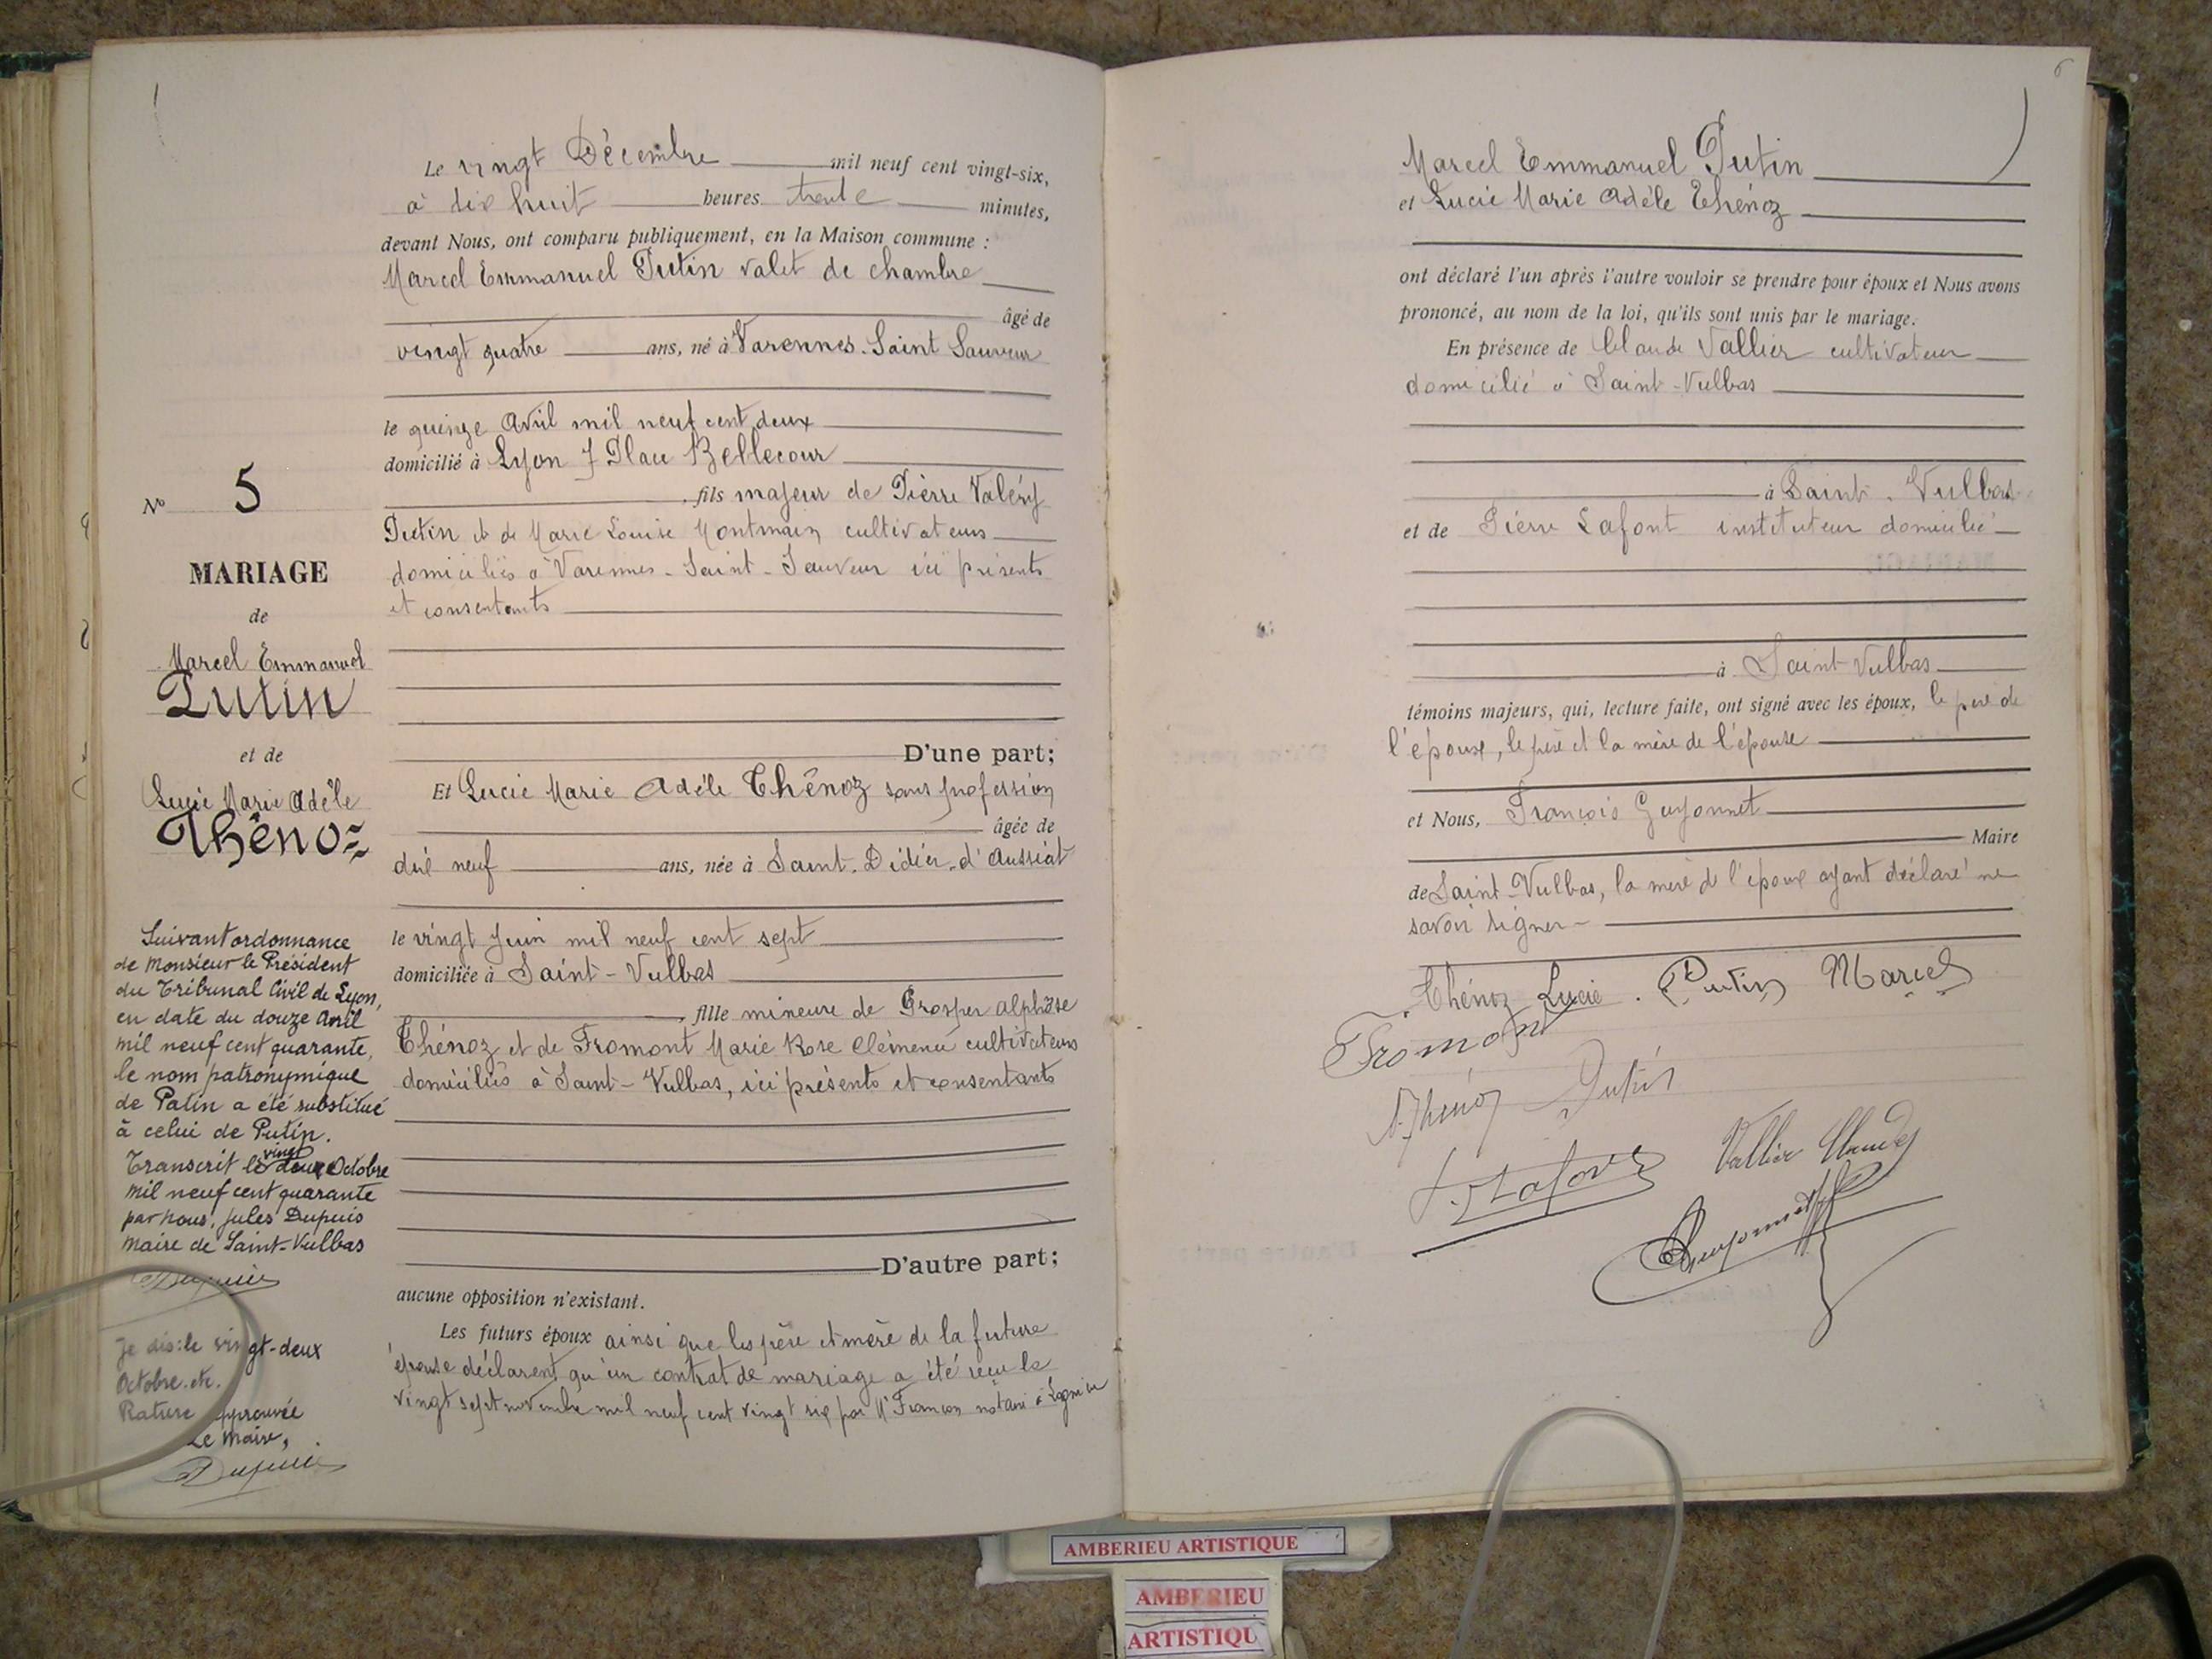 Le vingt Décembre mil neuf cent vingt-six,
à dix huit heures trente minutes,
devant Nous, ont comparu publiquement, en la Maison commune :
Marcel Emmanuel Putin valet de chambre
âgé de
vingt quatre ans, né à Varennes-Saint Sauveur
le quinze Avril mil neuf cent deux
domicilié à Lyon 7 Place Bellecour
fils majeur de Pierre Valéry
Putin et de Marie Louise Montmain cultivateurs
domiciliés à Varennes-Saint-Sauveur ici présents
et consentants
D'une part;
Et Lucie Marie Adèle Thénoz sans profession
âgée de
dix neuf ans, née à Saint-Didier-d'Aussiat
le vingt Juin mil neuf cent sept
domiciliée à Saint-Vulbas
fille mineure de Prosper Alphose
Thénoz et de Fromont Marie Rose Clémence cultivateurs
domiciliés à Saint-Vulbas, ici présents et consentants
D'autre part;
aucune opposition n'existant.
Les futurs époux ainsi que les père et mère de la future
épouse déclarent qu'un contrat de mariage a été reçu le
vingt sept novembre mil neuf cent vingt six par Me Françon notaire à Lagnieu
No 5
MARIAGE
de
Marcel Emmanuel
Putin
et de
Lucie Marie Adèle
Thénoz
Suivant ordonnance
de Monsieur le Président
du Tribunal Civil de Lyon,
en date du douze Avril
mil neuf cent quarante,
le nom patronymique
de Patin a été substitué
à celui de Putin.
Transcrit le vingt deux Octobre
mil neuf cent quarante
par nous, Jules Dupuis
Maire de Saint-Vulbas
Dupuis
Je dis: le vingt-deux
Octobre. etc.
Rature approuvée
Le Maire,
Dupuis
6
Marcel Emmanuel Putin
et Lucie Marie Adèle Thénoz
ont déclaré l'un après l'autre vouloir se prendre pour époux et Nous avons
prononcé, au nom de la loi, qu'ils sont unis par le mariage.
En présence de Claude Vallier cultivateur
domicilié à Saint-Vulbas
à Saint-Vulbas
et de Pierre Lafont instituteur domicilié
à Saint Vulbas
témoins majeurs, qui, lecture faite, ont signé avec les époux, le père de
l'époux, le père et la mère de l'épouse
et Nous, François Guyonnet
Maire
de Saint-Vulbas, la mère de l'époux ayant déclaré ne
savoir signer-
Thénoz Lucie. Putin Marcel
Fromont
A. Thénoz Putin
Lafont Vallier Claude
Guyonnet
AMBERIEU ARTISTIQUE
AMBERIEU
ARTISTIQU